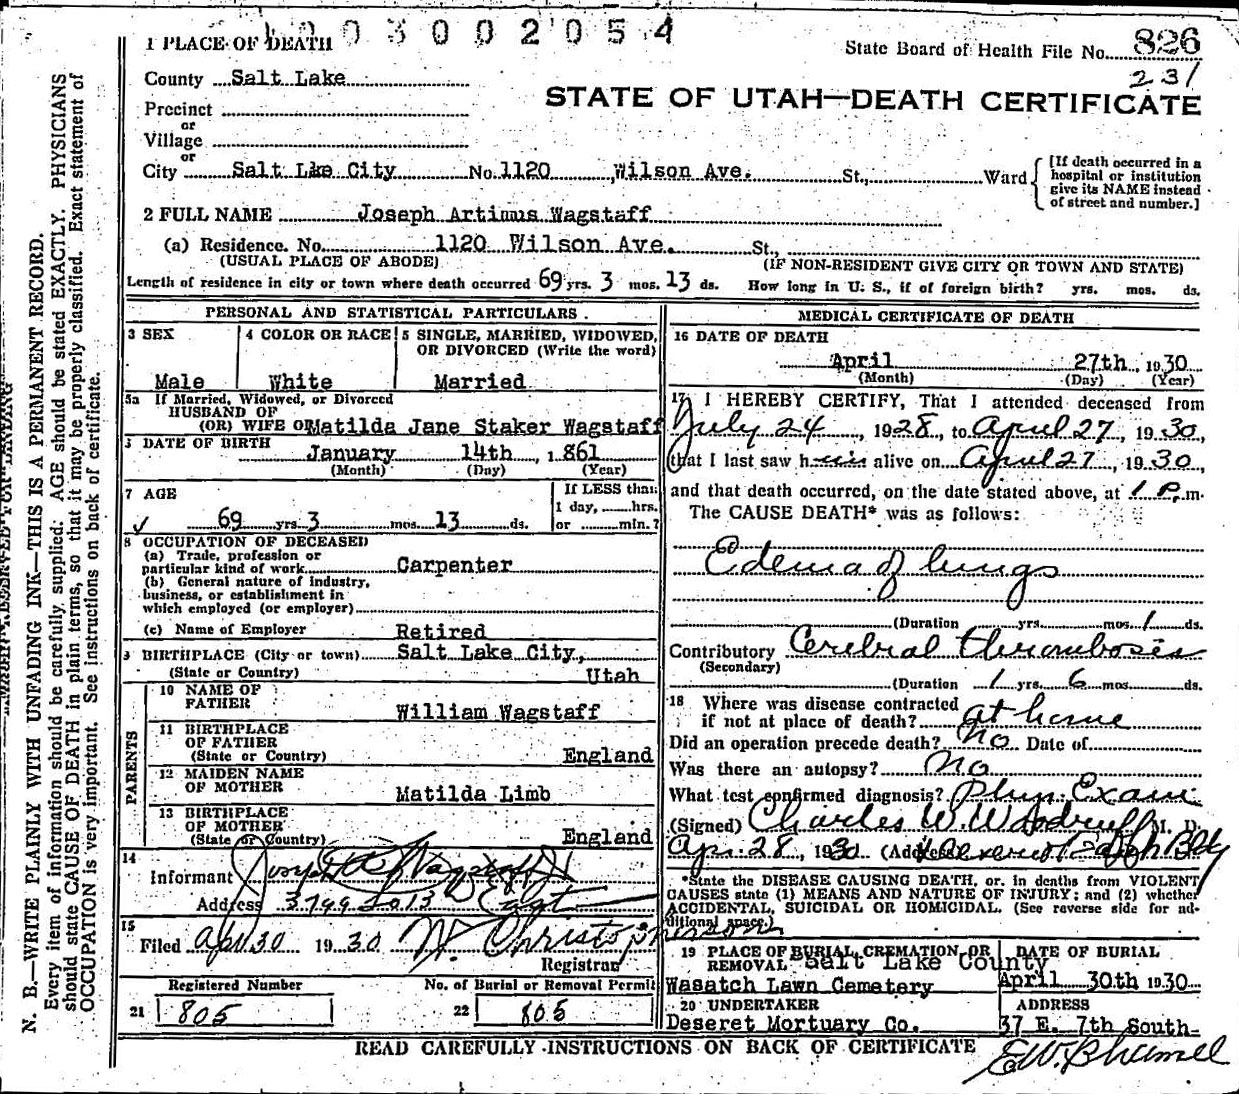 003002054
1 PLACE OF DEATH
State Board of Health File No. 826
231
County Salt Lake
STATE OF UTAH—DEATH CERTIFICATE
Precinct
or
Village
or
City Salt Lke City No. 1120 Wilson Ave. St., Ward
[If death occurred in a
hospital or institution
give its NAME instead
of street and number.]
2 FULL NAME Joseph Artimus Wagstaff
(a) Residence. No. 1120 Wilson Ave. St.,
(USUAL PLACE OF ABODE) (IF NON-RESIDENT GIVE CITY OR TOWN AND STATE)
Length of residence in city or town where death occurred 69 yrs. 3 mos. 13 ds. How long in U. S., if of foreign birth? yrs. mos. ds.
PERSONAL AND STATISTICAL PARTICULARS.
3 SEX 4 COLOR OR RACE 5 SINGLE, MARRIED, WIDOWED,
OR DIVORCED (Write the word)
Male White Married
5a If Married, Widowed, or Divorced
HUSBAND OF
(OR) WIFE OF Matilda Jane Staker Wagstaff
DATE OF BIRTH January 14th, 1861
(Month) (Day) (Year)
7 AGE If LESS than
1 day, hrs.
69 yrs. 3 mos. 13 ds. or min.?
8 OCCUPATION OF DECEASED
(a) Trade, profession or
particular kind of work Carpenter
(b) General nature of industry,
business, or establishment in
which employed (or employer)
(c) Name of Employer Retired
9 BIRTHPLACE (City or town) Salt Lake City,
(State or Country) Utah
PARENTS
10 NAME OF
FATHER William Wagstaff
11 BIRTHPLACE
OF FATHER
(State or Country) England
12 MAIDEN NAME
OF MOTHER Matilda Limb
13 BIRTHPLACE
OF MOTHER
(State or Country) England
14
Informant Joseph Wagstaff
Address 3799 So 13 East
15
Filed Apr 30 1930
Registrar
Registered Number No. of Burial or Removal Permit
21 805 22 805
MEDICAL CERTIFICATE OF DEATH
16 DATE OF DEATH
April 27th, 1930
(Month) (Day) (Year)
17 I HEREBY CERTIFY, That I attended deceased from
July 24, 1928, to April 27, 1930,
that I last saw him alive on April 27, 1930,
and that death occurred, on the date stated above, at 1 P.m.
The CAUSE DEATH* was as follows:
Edema of lungs
(Duration yrs. mos. 1 ds.
Contributory Cerebral thrombosis
(Secondary)
(Duration 1 yrs. 6 mos. ds.
18 Where was disease contracted
if not at place of death? at home
Did an operation precede death? No Date of
Was there an autopsy? No
What test confirmed diagnosis? Phys. Exam.
(Signed) Charles W. Woodruff M. D.
Apr. 28, 1930 (Address) Bldg
*State the DISEASE CAUSING DEATH, or, in deaths from VIOLENT
CAUSES state (1) MEANS AND NATURE OF INJURY; and (2) whether
ACCIDENTAL, SUICIDAL OR HOMICIDAL. (See reverse side for ad-
ditional space.)
19 PLACE OF BURIAL, CREMATION OR
REMOVAL Salt Lake County
Wasatch Lawn Cemetery
DATE OF BURIAL
April 30th 1930
20 UNDERTAKER ADDRESS
Deseret Mortuary Co. 37 E. 7th South
READ CAREFULLY INSTRUCTIONS ON BACK OF CERTIFICATE
N. B.—WRITE PLAINLY WITH UNFADING INK—THIS IS A PERMANENT RECORD.
Every item of information should be carefully supplied. AGE should be stated EXACTLY. PHYSICIANS
should state CAUSE OF DEATH in plain terms, so that it may be properly classified. Exact statement of
OCCUPATION is very important. See instructions on back of certificate.